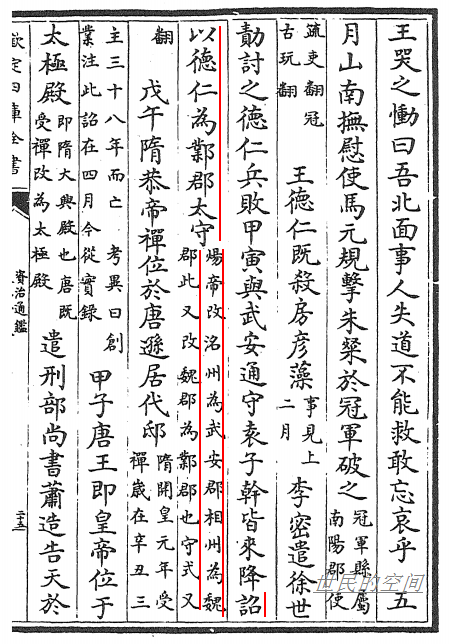 王哭之慟曰吾北面事人失道不能救敢忘哀乎 五
月山南撫慰使馬元規擊朱粲於冠軍破之
冠軍縣屬
南陽郡使
疏吏翻冠
古玩翻
王德仁既殺房彥藻
事見上
二月
李密遣徐世
勣討之德仁兵敗甲寅與武安通守袁子幹皆來降詔
以德仁為鄴郡太守
煬帝改洺州為武安郡相州為魏
郡此又改魏郡為鄴郡也守式又
翻
戊午隋恭帝禪位於唐遜居代邸
隋開皇元年受
禪歲在辛丑三
主三十八年而亡 考異曰創
業注此詔在四月今從實錄
甲子唐王即皇帝位于
太極殿
即隋大興殿也唐既
受禪改為太極殿
遣刑部尚書蕭造告天於
欽定四庫全書
資治通鑑
世民的空间